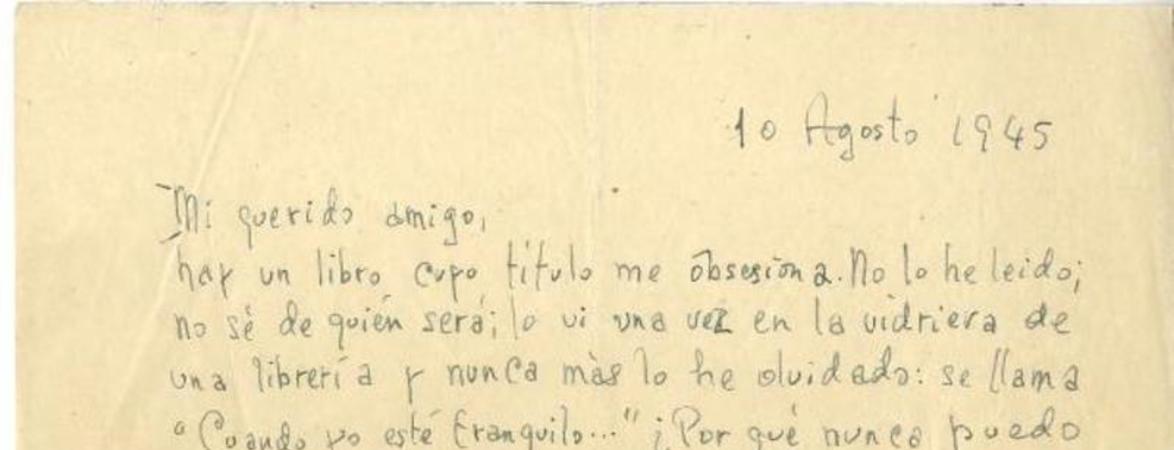 10 Agosto 1945
Mi querido amigo,
hay un libro cuyo título me obsesiona. No lo he leido;
no sé de quién será; lo vi una vez en la vidriera de
una librería y nunca màs lo he olvidado: se llama
"Cuando yo esté tranquilo..." ¡Por qué nunca puedo